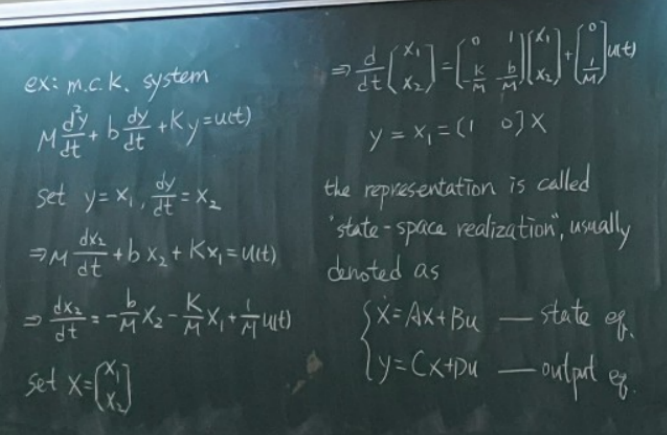 ex: m.c.k. system
M d²y/dt + b dy/dt + Ky = u(t)
set y = x₁, dy/dt = x₂
⇒ M dx₂/dt + b x₂ + Kx₁ = u(t)
⇒ dx₂/dt = -b/M x₂ - K/M x₁ + 1/M u(t)
set X = [x₁ x₂]
⇒ d/dt (x₁ x₂) = (0 1 -K/M -b/M)(x₁ x₂) + [0 1/M] u(t)
y = x₁ = (1 0) X
the representation is called
"state-space realization", usually
denoted as
{ Ẋ = Ax + Bu — state eq.
y = Cx + Du — output eq.